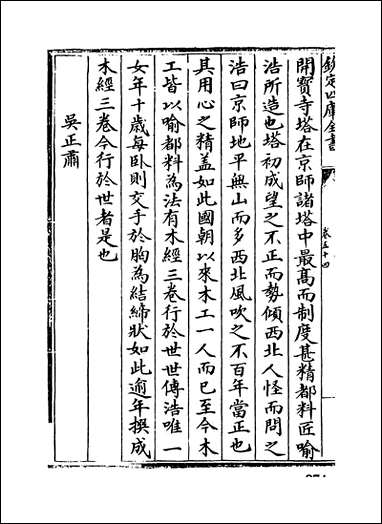 欽定四庫全書
卷五十四
開寶寺塔在京師諸塔中最髙而制度甚精都料匠喻
浩所造也塔初成望之不正而勢傾西北人怪而問之
浩曰京師地平無山而多西北風吹之不百年當正也
其用心之精盖如此國朝以來木工一人而已至今木
工皆以喻都料為法有木經三卷行於世世傳浩唯一
女年十歳每卧則交手於胸為結締狀如此逾年撰成
木經三卷今行於世者是也
吳正肅